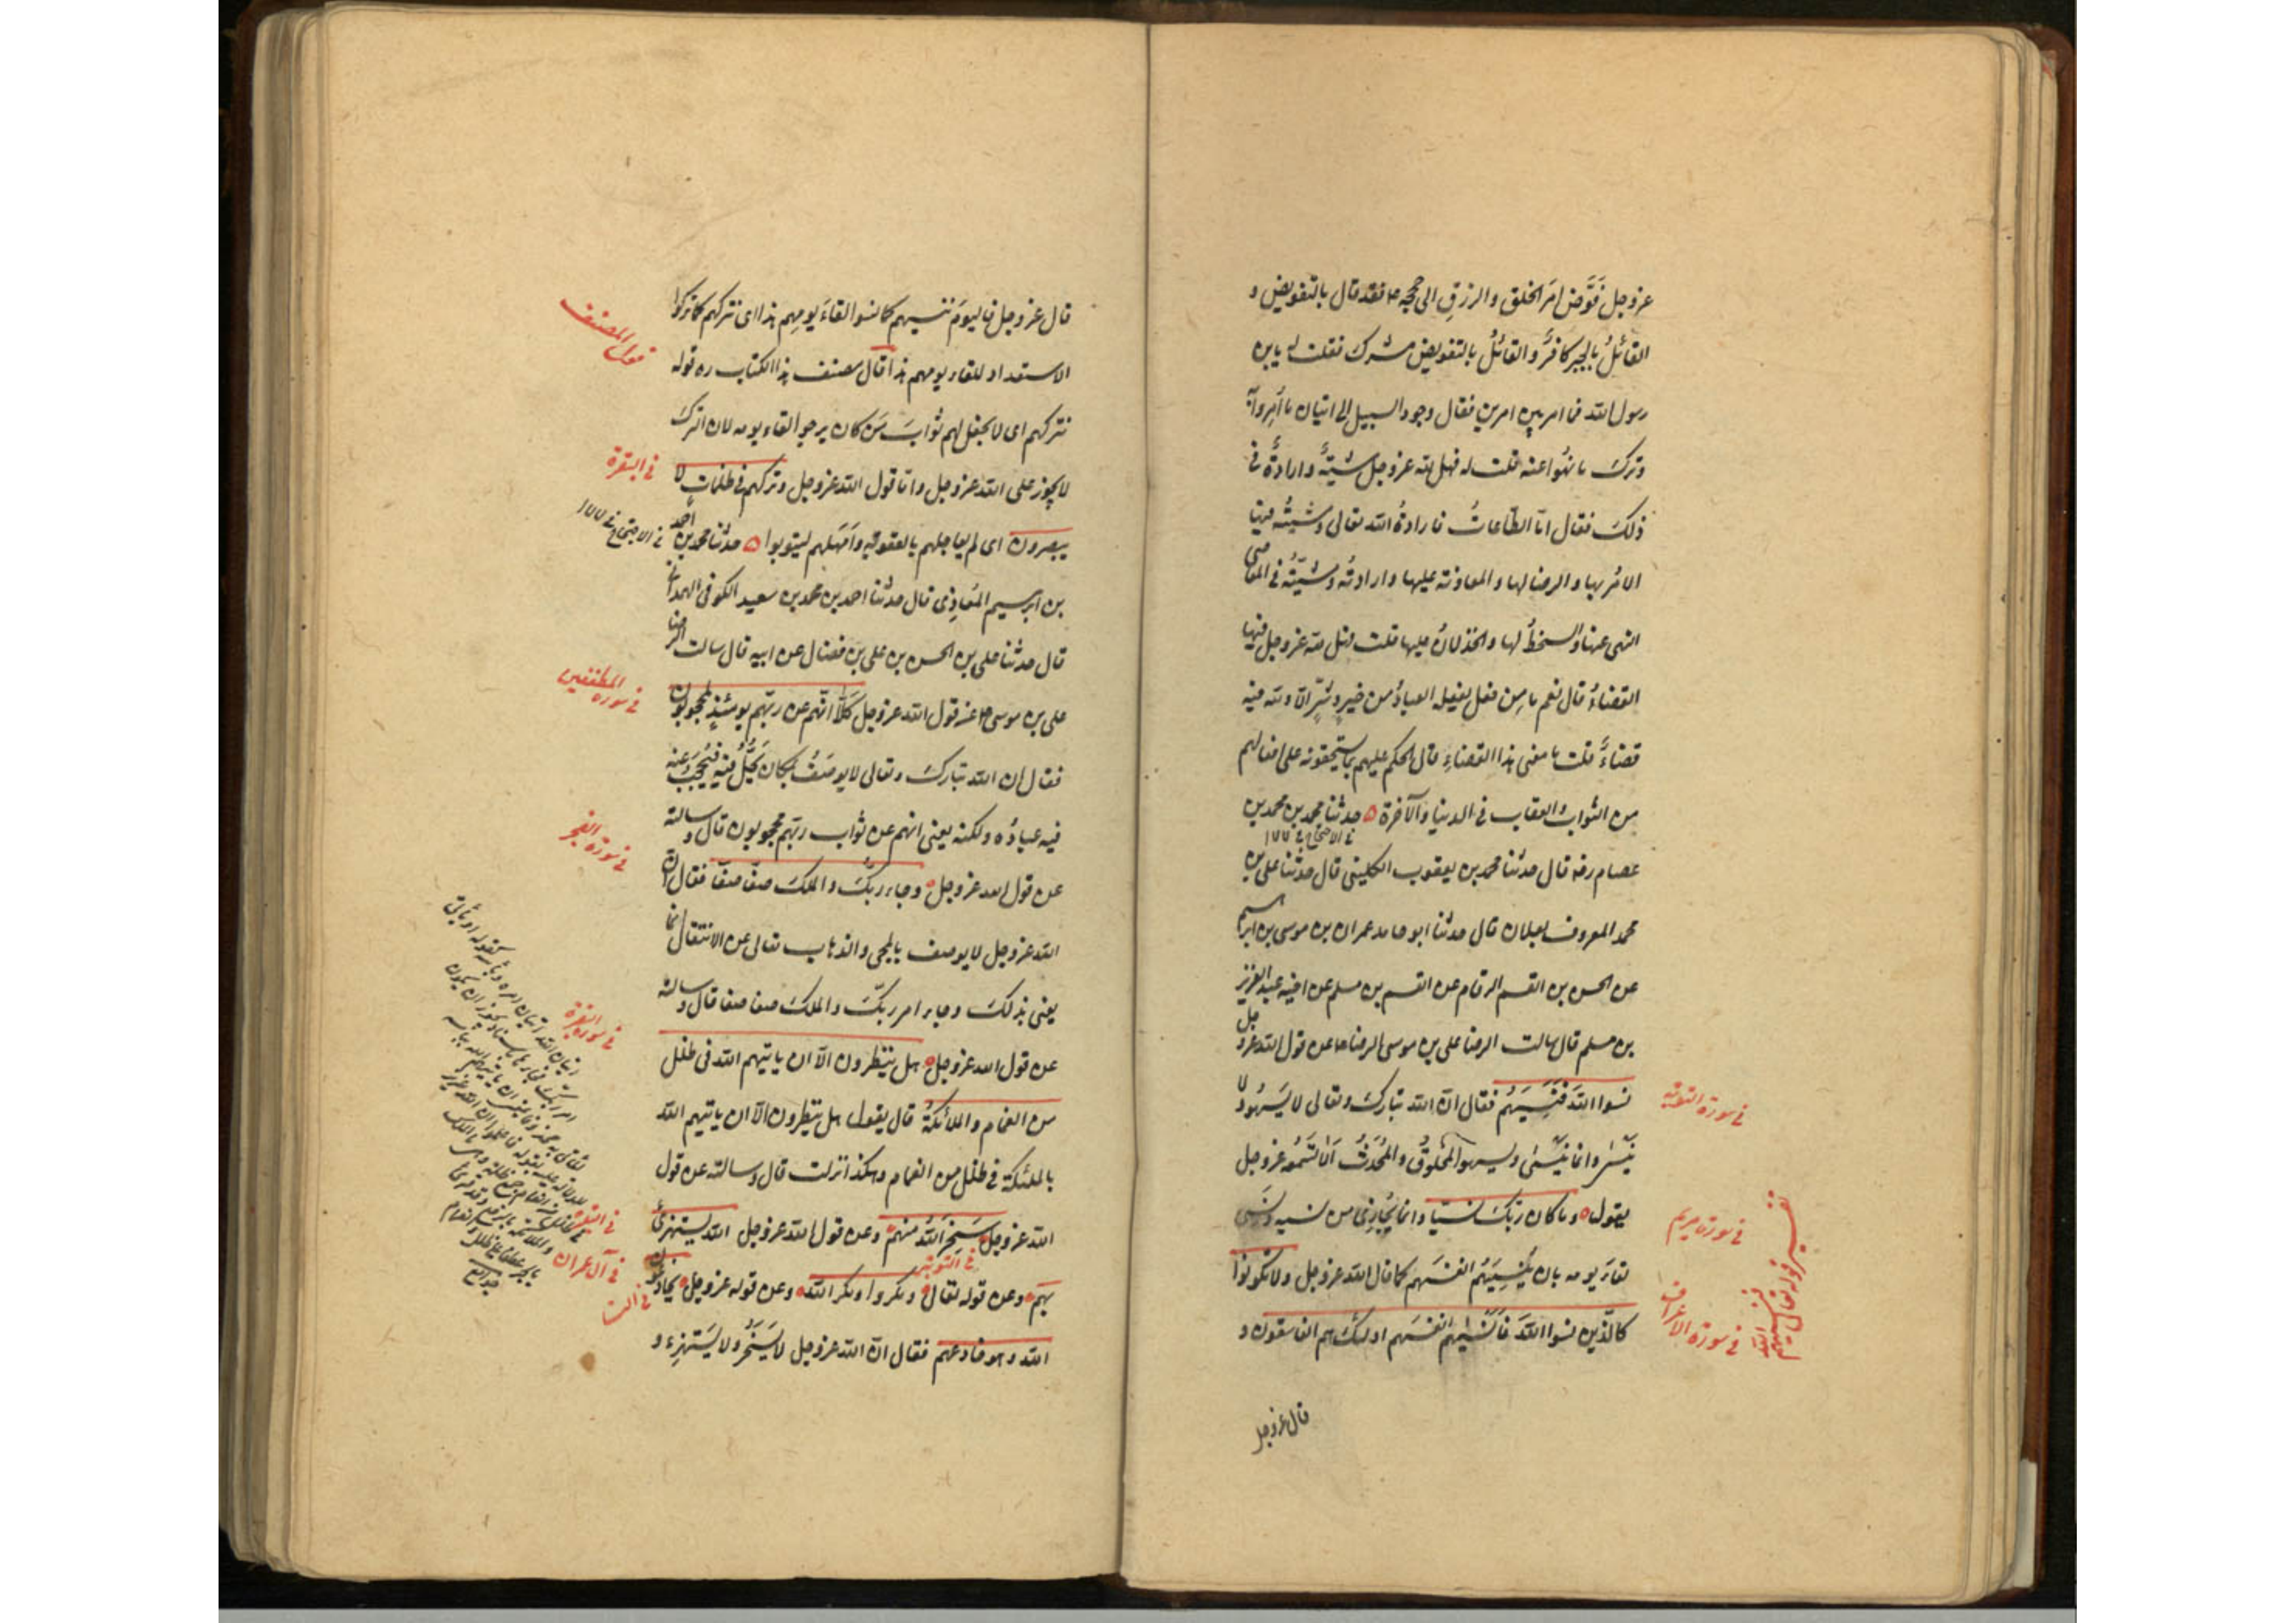 عز وجل فَوَّضَ امرَ الخلق والرزقِ الى حججه ع م فقد قال بالتفويض و
القائلُ بالجبر كافرٌ والقائلُ بالتفويض مشرك فقلت له يا بن
رسول الله فما امر بين امرين فقال وجود السبيل الى اتيان ما أُمِروا به
وتركَ ما نهُوا عنه قلت له فهل لله عز وجل مشيّةٌ وارادةٌ فى
ذلكَ فقال امّا الطّاعاتُ فارادةُ الله تعالى ومشيّتُه فيها
الامرُ بها والرضا لها والمعاونة عليها وارادتُه ومشيّتُه فى المعاصى
النهى عنها والسخطُ لها والخذلانُ عليها قلت فهل لله عز وجل فيها
القضاءُ قال نعم ما مِن فعل يفعله العبادُ من خيرٍ وشرٍّ الّا ولله فيه
قضاءٌ قلت ما معنى هذا القضاءِ قال الحكم عليهم بما يستحقونه على افعالهم
من الثواب والعقاب فى الدنيا والآخرة ۵ حدثنا محمد بن محمد بن
فى الاحتجاج فى ١٧٧
عصام رضه قال حدثنا محمد بن يعقوب الكلينى قال حدثنا على بن
محمد المعروف بعلان قال حدثنا ابو حامد عمران بن موسى بن ابرهيم
عن الحسن بن القسم الرقام عن القسم بن مسلم عن اخيه عبد العزيز
بن مسلم قال سالت الرضا على بن موسى الرضا ع عن قول الله عز وجل
نسوا اللهَ فَنَسِيَهُم فقال انّ الله تبارك وتعالى لا يَسهُو ولا
يَنسى وانما يَنسى ويسهو المخلوقُ والمُحدَثُ اَلا تَسمعُه عز وجل
يقول وما كان ربّك نسيّا وانما يُجازِى من نسيه ونسى
لقاءَ يومه بان يُنسِيَهُم انفسَهم كما قال الله عز وجل ولا تكونوا
كالذين نسوا اللهَ فانسٰيهم انفسَهم اولئك هم الفاسقون و
قال عز وجل
فى سورة التوبة
فى سورة مريم
فى سورة الاعراف
تفسير قوله تعالى
نسوا الله فنسيهم
قال عز وجل فاليومَ ننسيهم كما نسوا لقاءَ يومِهم هذا اى نتركهم كما تركوا
الاستعداد للقاء يومهم هذا قال مصنف هذا الكتاب ره قوله
نتركهم اى لا نجعل لهم ثوابَ مَن كان يرجو لقاء يومه لان التركَ
لا يجوز على الله عز وجل واما قول الله عز وجل وتركهم فى ظلمات لا
يبصرون اى لم يعاجلهم بالعقوبة وامهلهم ليتوبوا ۵ حدثنا محمد بن احمد
بن ابرهيم المُعاذِى قال حدثنا احمد بن محمد بن سعيد الكوفى الهمدانى
قال حدثنا على بن الحسن بن على بن فضال عن ابيه قال سالت الرضا
على بن موسى ع عن قول الله عز وجل كَلّا انّهم عن ربّهم يومئذٍ لمحجوبون
فقال ان الله تبارك وتعالى لا يوصَفُ بمكان يَحُلُّ فيه فيُحجَبَ عنه
فيه عبادُه ولكنه يعنى انهم عن ثواب ربّهم محجوبون قال وسالته
عن قول الله عز وجل وجاء ربُّكَ والملكُ صفّا صفّا فقال ان
الله عز وجل لا يوصف بالمجى والذهاب تعالى عن الانتقال انما
يعنى بذلكَ وجاء امر ربّك والملكُ صفا صفا قال وسالته
عن قول الله عز وجل هل ينظرون الّا ان ياتيهم الله فى ظلل
من الغمام والملائكةُ قال يقول هل ينظرون الّا ان ياتيهم الله
بالملئكة فى ظلل من الغمام وهكذا نزلت قال وسالته عن قول
الله عز وجل سَخِرَ اللهُ منهم وعن قول الله عز وجل الله يستهزئُ
بهم وعن قوله تعالى ومكروا ومكر الله وعن قوله عز وجل يخادعون
الله وهو خادعهم فقال انّ الله عز وجل لا يَسخَرُ ولا يَستهزِء و
قول المصنف
فى البقرة
فى الاحتجاج فى ١٧٧
فى سورة المطففين
فى سورة الفجر
فى سورة البقرة
فى التوبة
فى البقرة
فى آل عمران
فى النسا